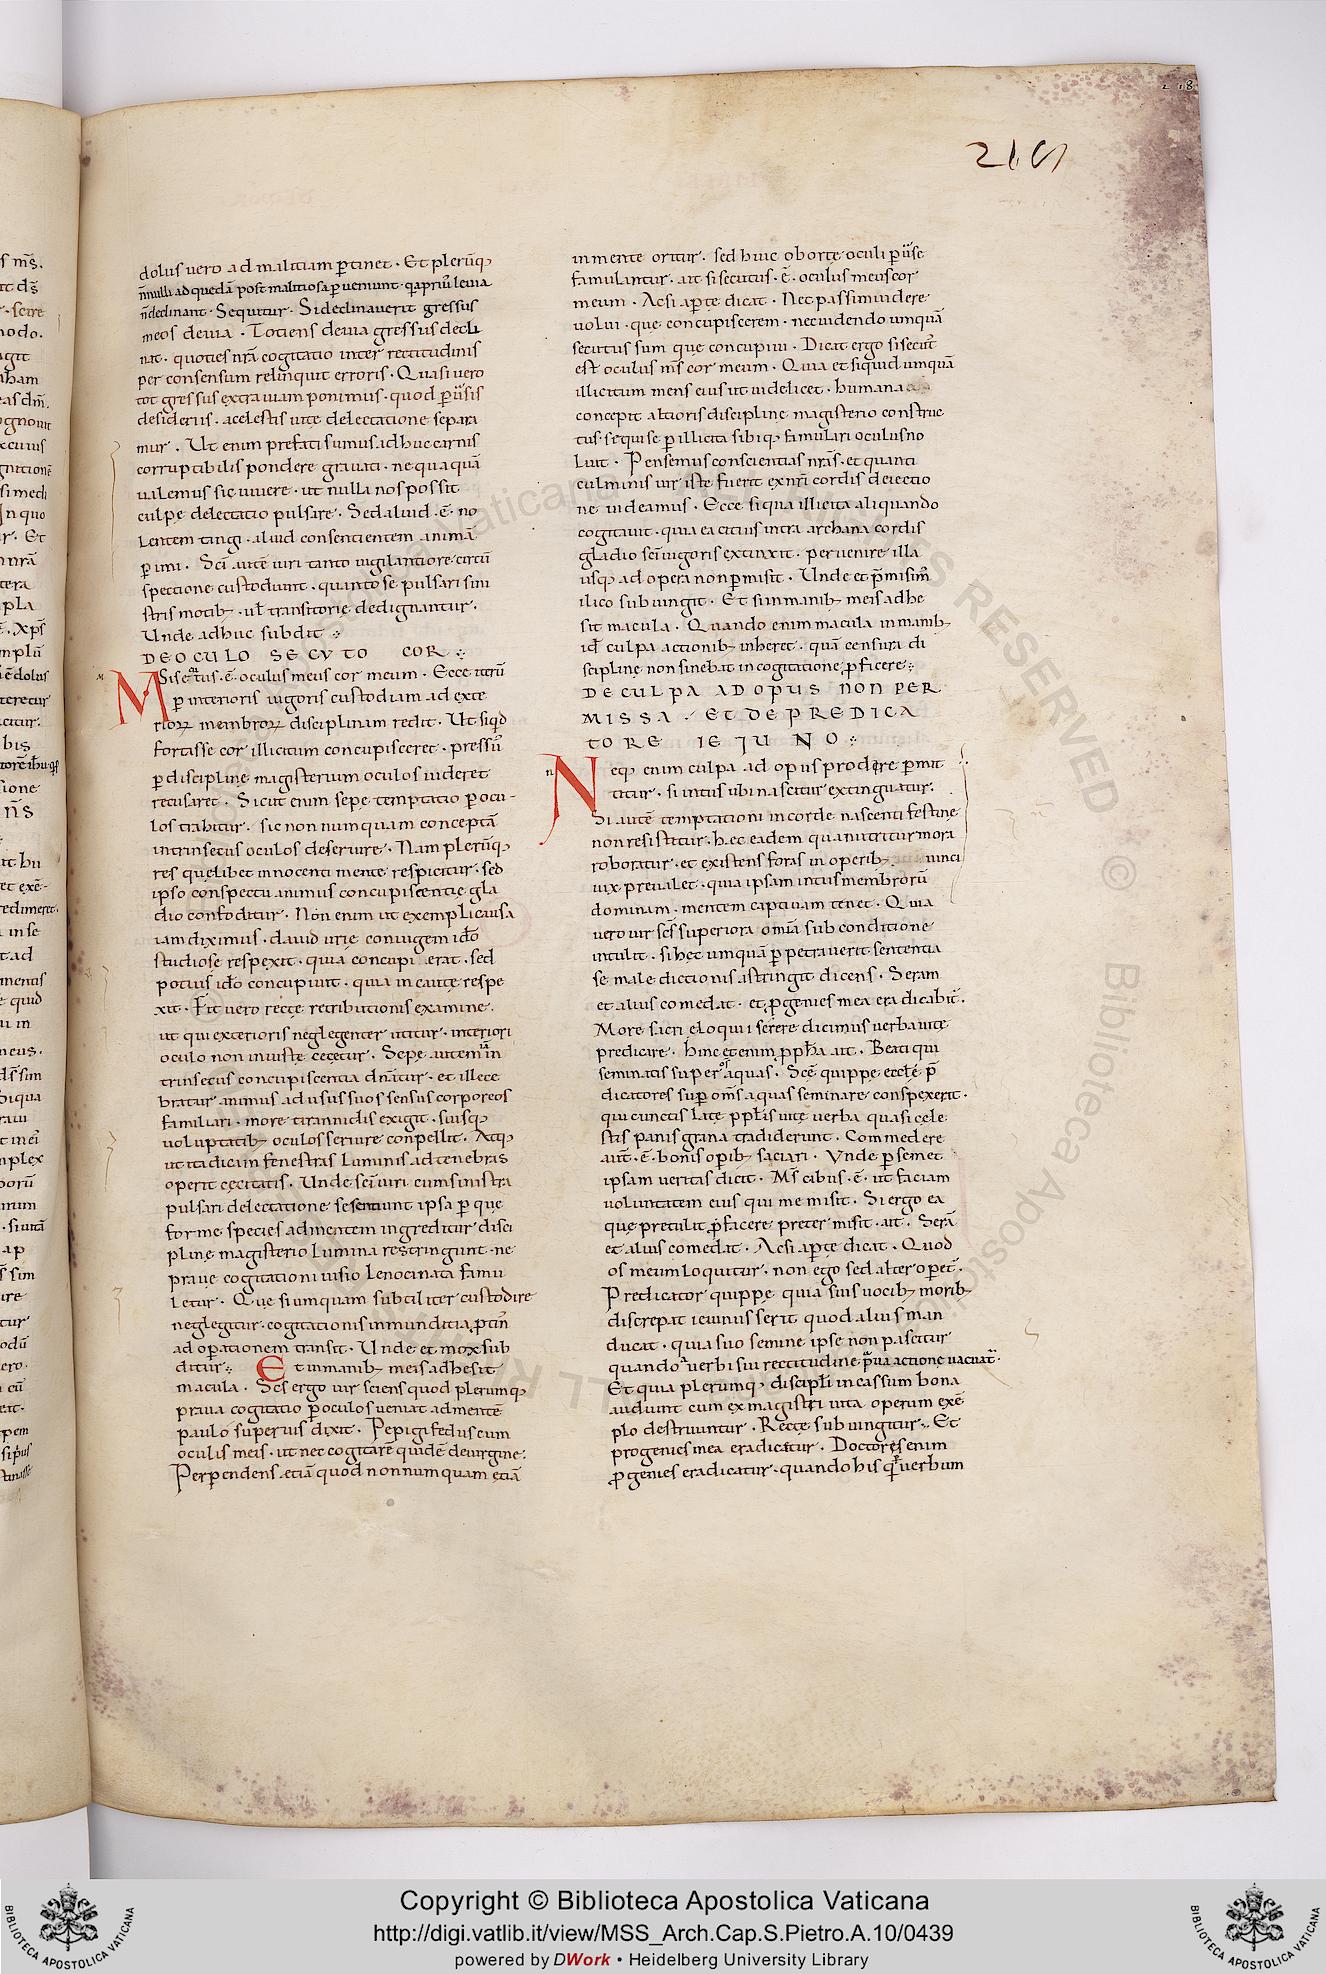 218
216
dolus vero ad malitiam ꝑtinet · Et plerūq;
n̄nulli ad quedā post malitiosa ꝑveniunt · q̄a prius levia
n̄ declinant · Sequitur · Si declinaverit gressus
meos de via · Totiens de via gressus decli
nat · quoties nr̄a cogitatio iter rectitudinis
per consensum relinquit erroris · Quasi vero
tot gressus extra viam ponimus · quod ꝑ usis
desideriis · a celestis vitę delectatione separa
mur · Ut enim prefati sumus adhuc carnis
corruptibilis pondere gravati · nequaquā
valemus sic vivere · ut nulla nos possit
culpę delectatio pulsare · Sed aliud · ē · no
lentem tangi · aliud consentientem animā
ꝑimi · Sc̄i autē viri tanto vigilantiore circū
spectione custodiunt · quanto se pulsari sini
stris motib; · vl̄ transitorię dedignantur ·
Unde adhuc subdit
DE OCULO SECUTO COR
m
M
Si secutus · ē · oculus meus cor meum · Ecce iterū
ꝑ interioris vigoris custodiam ad exte
rioꝝ membroꝝ disciplinam redit · Ut siqd
fortasse cor illicitum concupisceret · pressū
ꝑ discipline magisterium oculos videret
recusaret · Sicut enim sepe temptatio ꝑ ocu
los trahitur · sic non numquam conceptā
intrinsecus oculos deservire · Nam plerūq;
res quelibet innocenti mente respicitur · sed
ipso conspectu animus concupiscentię gla
dio confoditur · Non enim ut exempli causa
iam diximus · david urię coniugem idō
studiose respexit · quia concupierat · sed
potius idō concupivit · quia incaute respe
xit · Fit vero rectę retributionis examine
ut qui exteriori neglegenter utitur · interiori
oculo non iniustę cecetur · Sepe autem iam in
trinsecus concupiscentia dn̄atur · et illece
bratur animus ad usus suos sensus corporeos
famulari · more tirannidis exigit · suisq;
voluptatib; oculos servire conpellit · Atq;
ut ita dicam fenestras luminis ad tenebras
operit cecitatis · Unde sc̄i viri cum sinistra
pulsari delectatione se sentiunt ipsa ꝑ que
formę species ad mentem ingreditur disci
plinę magisterio lumina restringunt · ne
prave cogitationi visio lenocinata famu
letur · Que si umquam subtiliter custodire
neglegitur · cogitationis inmunditia ꝓtin̄
ad oꝑationem transit · Unde et mox sub
ditur · Et in manib; meis adhesit
macula · Sc̄s ergo vir sciens quod plerumq;
prava cogitatio ꝑ oculos veniat ad mentē
paulo superius dixit · Pepigi fedus cum
oculis meis · ut nec cogitarē quidē de virgine ·
Perpendens etiā quod non numquam etiā
in mente oritur · sed huic obortę oculi ꝑ use
famulantur · ait si secutus · ē · oculus meus cor
meum · Ac si aꝑtę dicat · Nec passim videre
volui · que concupiscerem · nec videndo umquā
secutus sum que concupivi · Dicat ergo si secut᷒
est oculus ms̄ cor meum · Quia et siquid umquā
illicitum mens eius ut videlicet · humana
concepit altioris disciplinę magisterio constric
tus · sequi se ꝑ illicita sibiq; famulari oculus no
luit · Pensemus conscientias nr̄as · et quanti
culminis vir iste fuerit ex nr̄i cordis deiectio
ne videamus · Ecce siqua illicita aliquando
cogitavit · quia ea citius intra archana cordis
gladio sc̄i vigoris extinxit · pervenire illa
usq; ad opera non ꝑmisit · Unde et p̄misim᷒
ilico subiungit · Et si in manib; meis adhe
sit macula · Quando enim macula in manib;
id̄ culpa actionib; inheret · quā censura di
scipline non sinebat in cogitatione ꝓficere
DE CULPA AD OPUS NON PER
MISSA · ET DE PREDICA
TORE IEIUNO
n
N
eq; enim culpa ad opus prodere ꝑmit
titur · si intus ubi nascitur extinguatur ·
Si autē temptationi in corde nascenti festine
non resistitur · hęc eadem qua nutritur mora
roboratur · et existens foras in operib; vinci
vix prevalet · quia ipsam intus membrorū
dominam · mentem captivam tenet · Quia
vero vir sc̄s superiora om̄ia sub conditione
intulit · si hęc umquā ꝑpetraverit sententia
se maledictionis astringit dicens · Seram
et alius comedat · et ꝓgenies mea eradicabit̄ ·
More sacri eloquii serere dicimus verba vitę
predicare · hinc etenim ꝓph̄a ait · Beati qui
seminatis super aquas · Scē quippe eccle p̄
dicatores suꝑ om̄s aquas seminare conspexerit ·
qui cunctis late ppl̄is vitę verba quasi cele
stis panis grana tradiderunt · Commedere
aut̄ · ē · bonis oꝑib; saciari · Unde ꝑ semet
ipsam veritas dicit · Ms̄ cibus · ē · ut faciam
voluntatem eius qui me misit · Si ergo ea
que pretulit ꝓfacere preter misit · ait · Serā
et alius comedat · Ac si aꝑtę dicat · Quod
os meum loquitur · non ego sed alter oꝑet̄ ·
Predicator quippe quia suis vocib; morib;
discrepat ieiunus serit quod alius man
ducat · quia suo semine ipse non pascitur
quando a verbi sui rectitudine prava actione vacuat᷒ ·
Et quia plerumq; discipl̄i incassum bona
audiunt cum ex magistri vita operum exē
plo destruuntur · Recte subiungitur · Et
progenies mea eradicatur · Doctores enim
ꝓgenies eradicatur · quando his qui verbum
Copyright © Biblioteca Apostolica Vaticana
http://digi.vatlib.it/view/MSS_Arch.Cap.S.Pietro.A.10/0439
powered by DWork • Heidelberg University Library
BIBLIOTECA APOSTOLICA VATICANA
BIBLIOTECA APOSTOLICA VATICANA